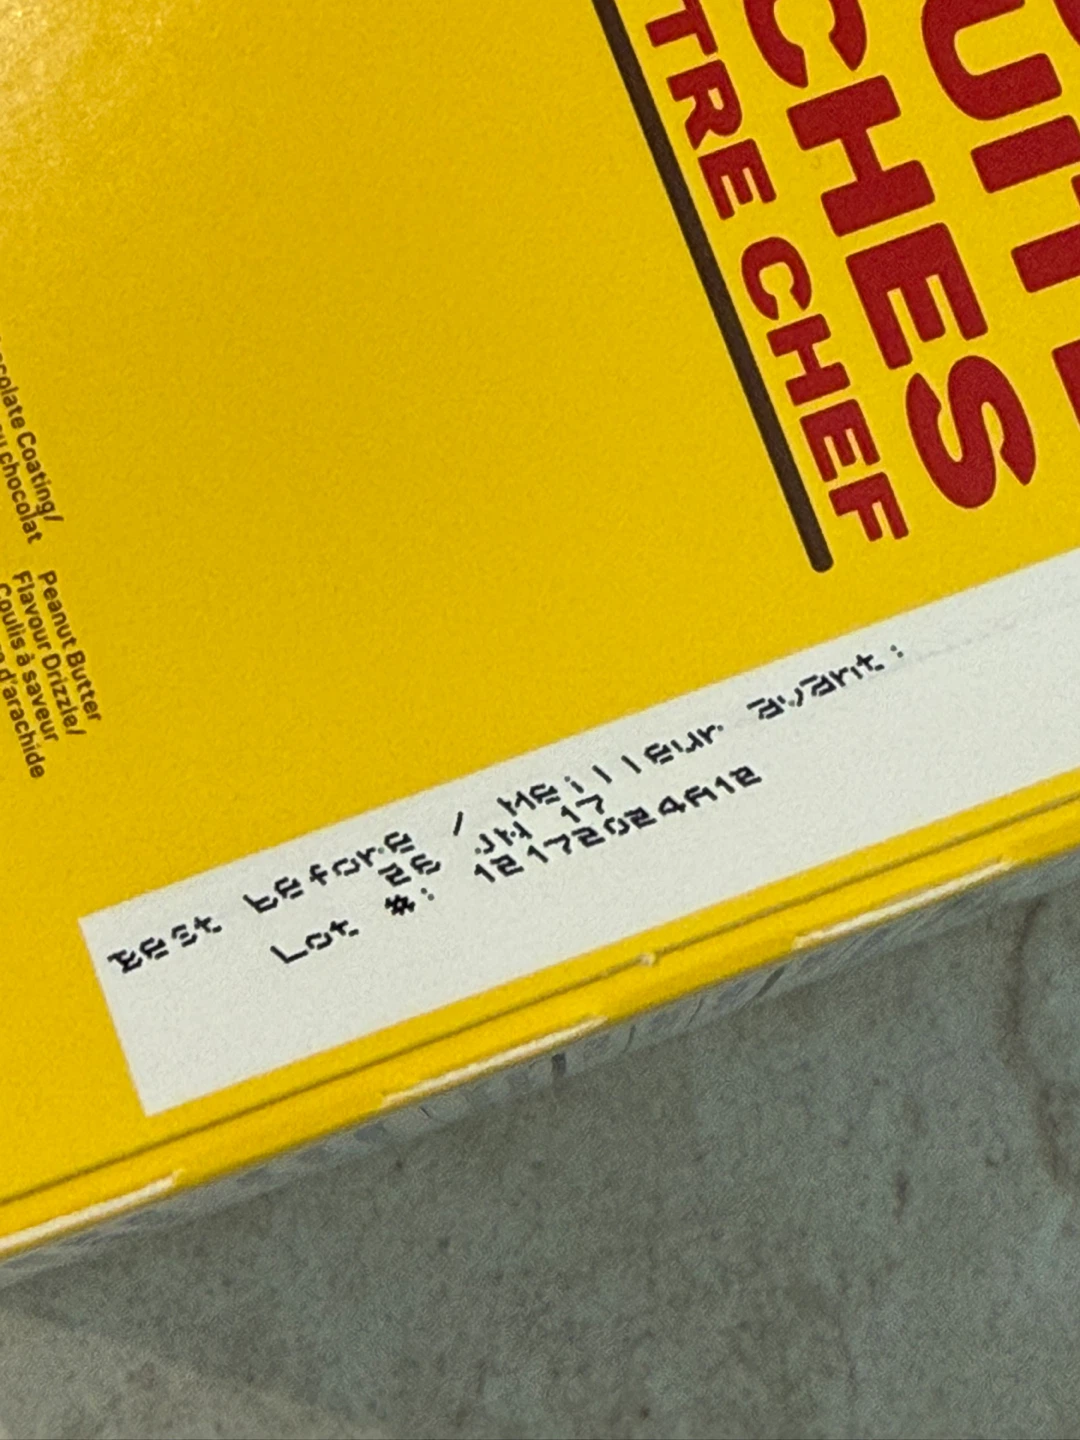 TRE CHEF
CHES
colate Coating/
au chocolat
Peanut Butter
Flavour Drizzle/
Coulis à saveur
d'arachide
Best before / Meilleur avant:
26 JN 17
Lot #: 12172024A12